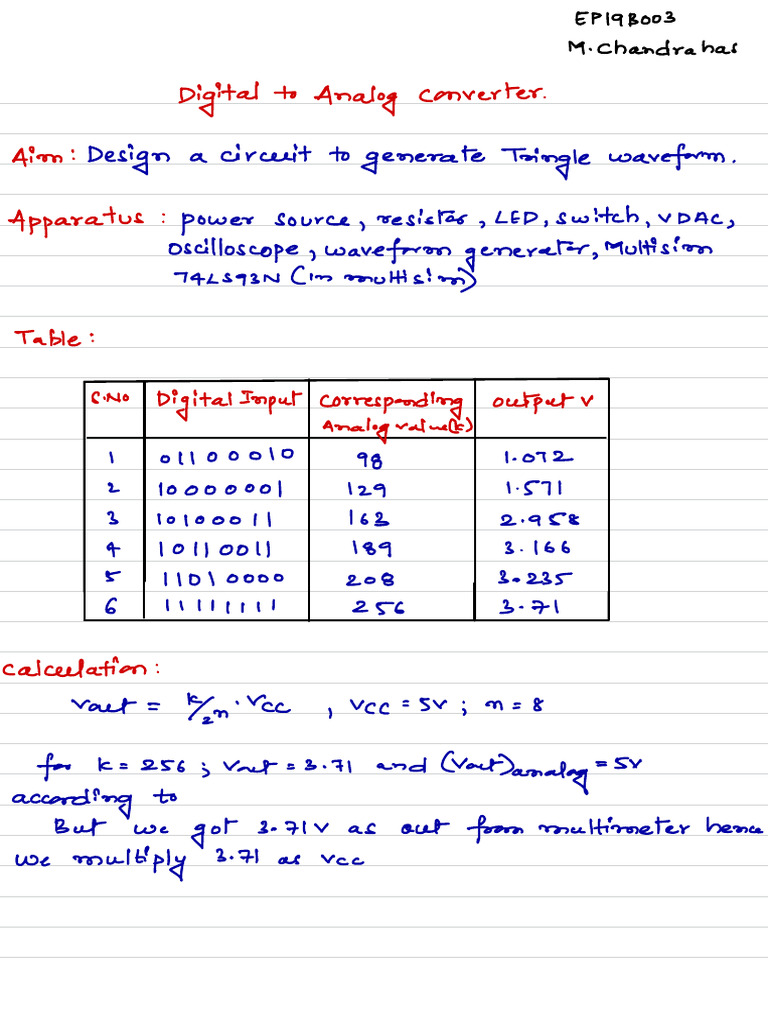 EP19B003
M. Chandrahas
Digital to Analog converter.
Aim: Design a circuit to generate Tringle waveform.
Apparatus: power source, resistor, LED, switch, VDAC,
oscilloscope, waveform generator, Multisim
74LS93N (in multisim)
Table:
S.No Digital Input Corresponding Analog value(k) output v
1 01100010 98 1.072
2 10000001 129 1.571
3 10100011 163 2.958
4 10110011 189 3.166
5 11010000 208 3.235
6 11111111 256 3.71
Calculation:
Vout = k/2n . Vcc , Vcc = 5V ; n = 8
for k = 256 ; Vout = 3.71 and (Vout)analog = 5V
according to
But we got 3.71V as out from multimeter hence
we multiply 3.71 as Vcc